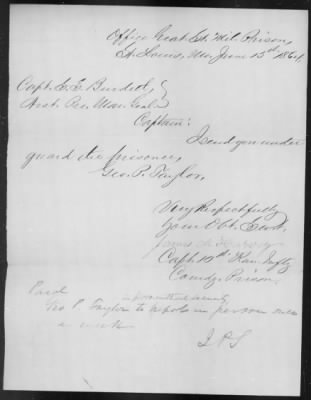 Office Grat. St. Mil. Prison,
St. Louis, Mo, June 15th 1864.
Capt.
Asst. Pro. Mar. Genl.
Captain:
I send you under
guard the prisoner,
Geo. P. Taylor.
Very Respectfully
Your Obt. Servt.
Capt. 10th Kan. Infty
Comdg. Prison.
Geo P. Taylor to report in person
a week